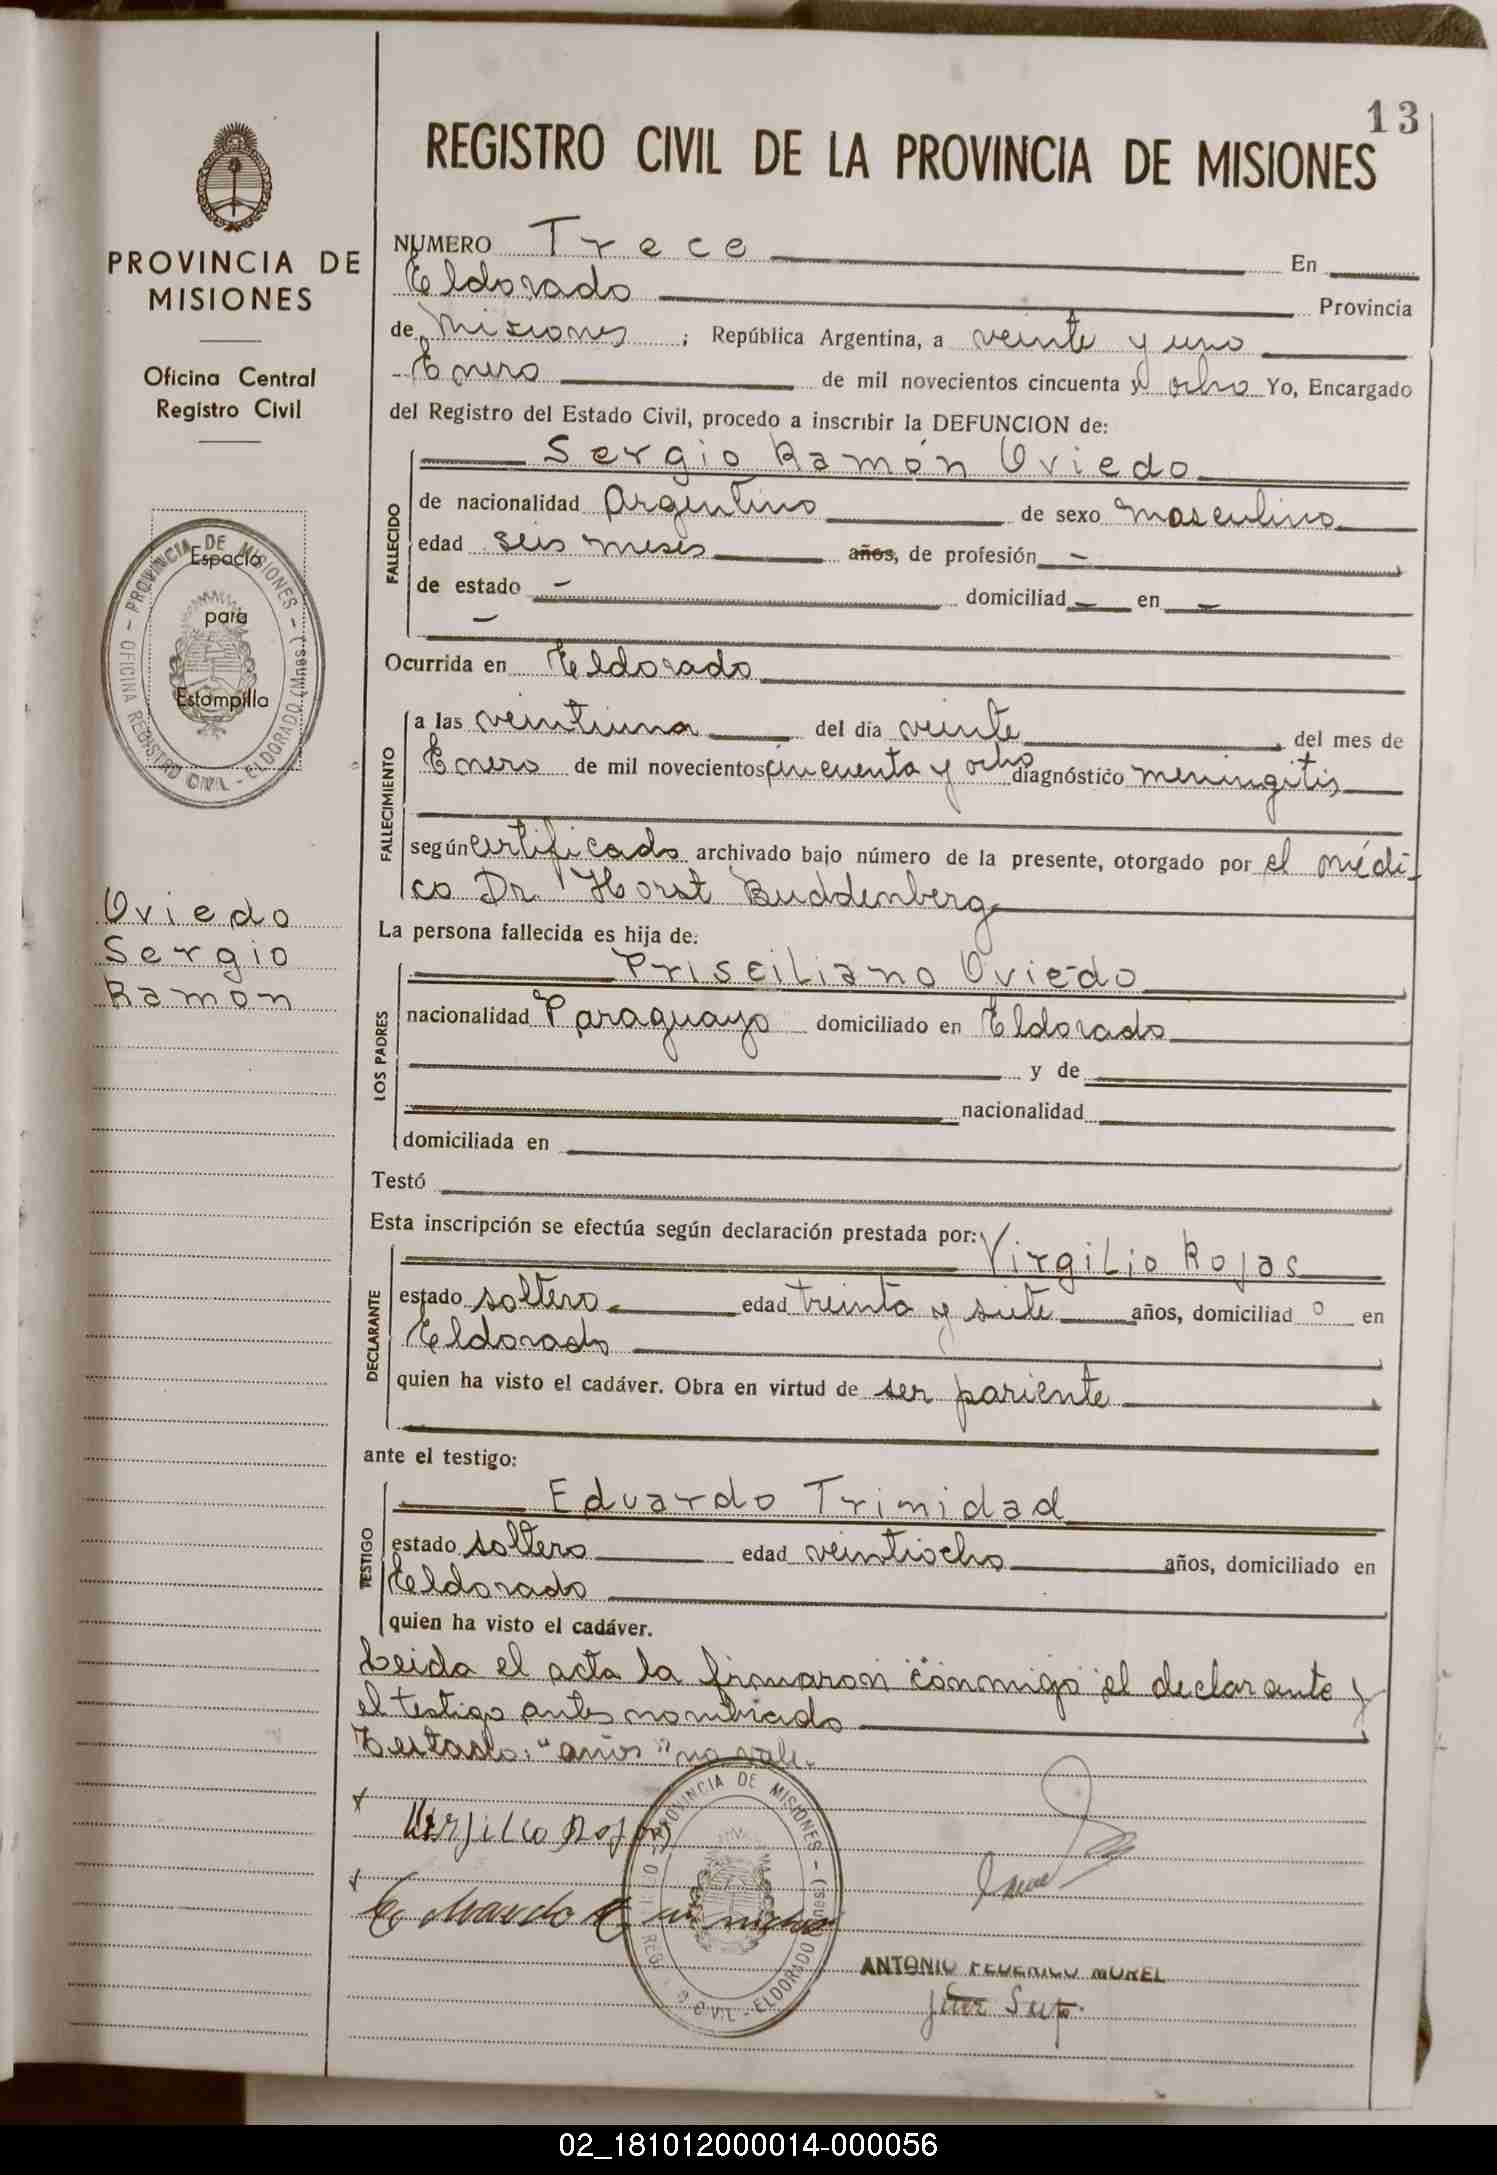 13
REGISTRO CIVIL DE LA PROVINCIA DE MISIONES
PROVINCIA DE
MISIONES
Oficina Central
Registro Civil
Espacio
para
Estampilla
PROVINCIA DE MISIONES - OFICINA REGISTRO CIVIL - ELDORADO (Mnes.)
Oviedo
Sergio
Ramón
NUMERO Trece En
Eldorado Provincia
de Misiones ; República Argentina, a veinte y uno
Enero de mil novecientos cincuenta y ocho Yo, Encargado
del Registro del Estado Civil, procedo a inscribir la DEFUNCION de:
Sergio Ramón Oviedo
FALLECIDO
de nacionalidad Argentino de sexo masculino
edad seis meses años, de profesión -
de estado - domiciliad - en -
-
Ocurrida en Eldorado
FALLECIMIENTO
a las veintiuna del día veinte del mes de
Enero de mil novecientos cincuenta y ocho diagnóstico meningitis
según certificado archivado bajo número de la presente, otorgado por el médi-
co Dr. Horst Buddenberg
La persona fallecida es hija de:
LOS PADRES
Prisciliano Oviedo
nacionalidad Paraguayo domiciliado en Eldorado
y de
nacionalidad
domiciliada en
Testó
Esta inscripción se efectúa según declaración prestada por: Virgilio Rojas
DECLARANTE
estado soltero edad treinta y siete años, domiciliad o en
Eldorado
quien ha visto el cadáver. Obra en virtud de ser pariente
ante el testigo:
TESTIGO
Eduardo Trinidad
estado soltero edad veintiocho años, domiciliado en
Eldorado
quien ha visto el cadáver.
Leida el acta la firmaron conmigo el declarante y
el testigo antes nombrado
Testado: "años" no vale.
PROVINCIA DE MISIONES - ELDORADO (Mnes.)
ANTONIO FEDERICO MOREL
02_181012000014-000056